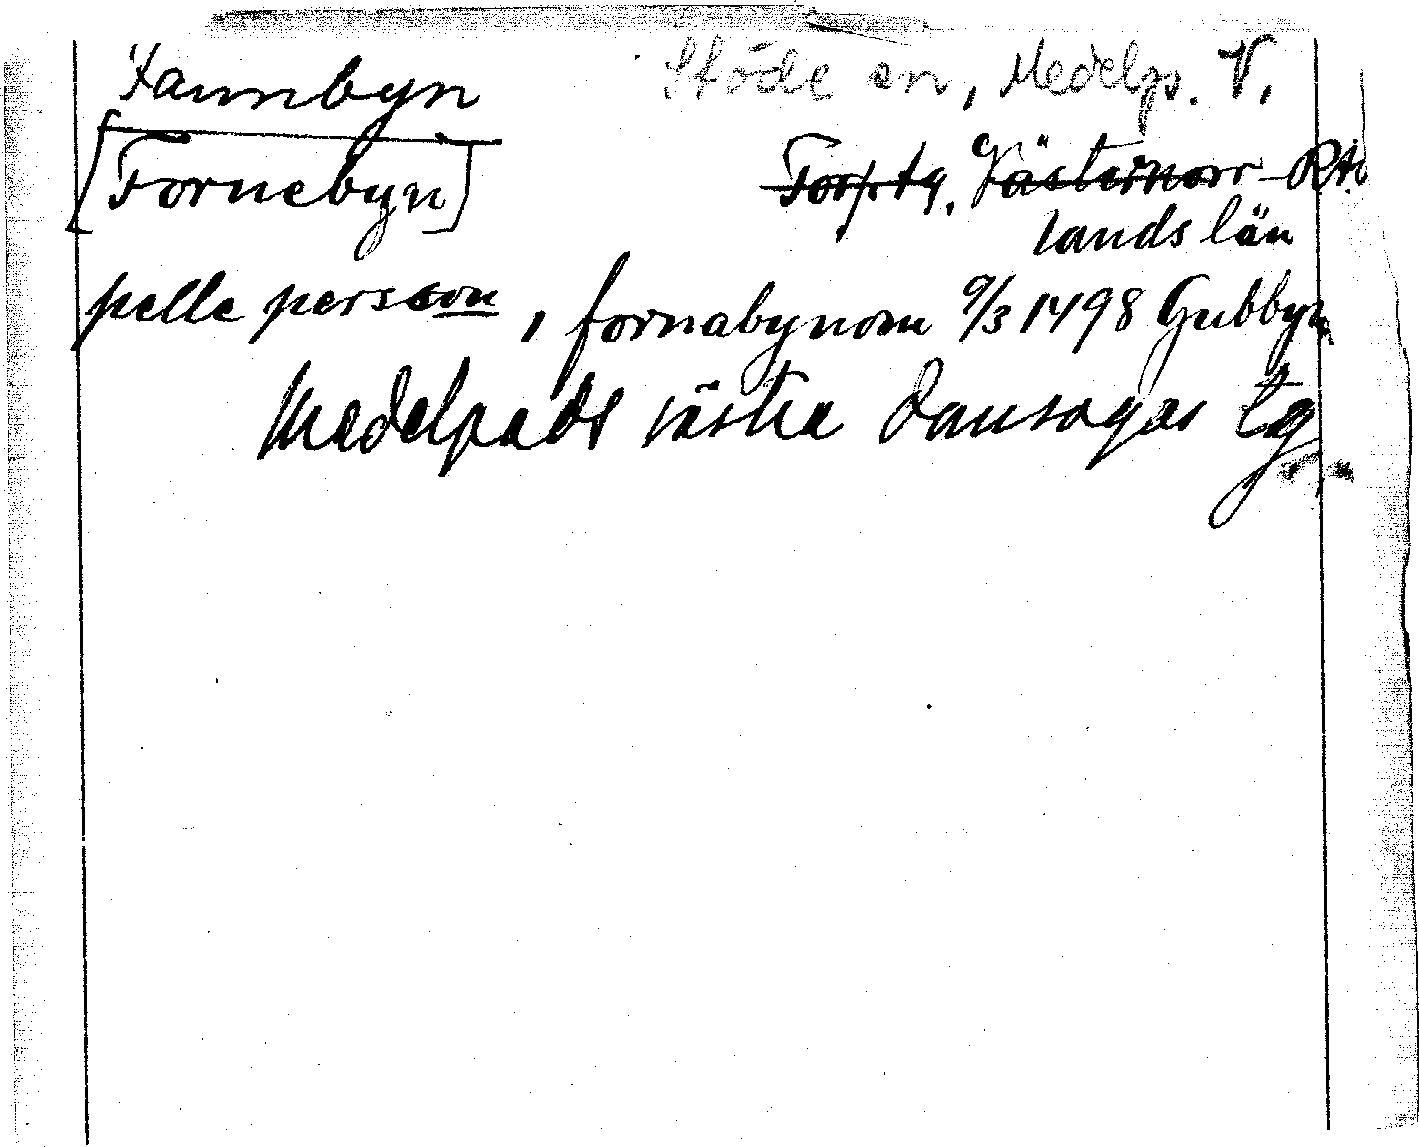 Fannbyn Stöde sn, Medelps. V.
[Fornebyn] Torp. tg. Västernorr- RA
lands län
pelle persson, fornabynom 9/3 1498 Gubbyn
Medelpads västra domsagas tg